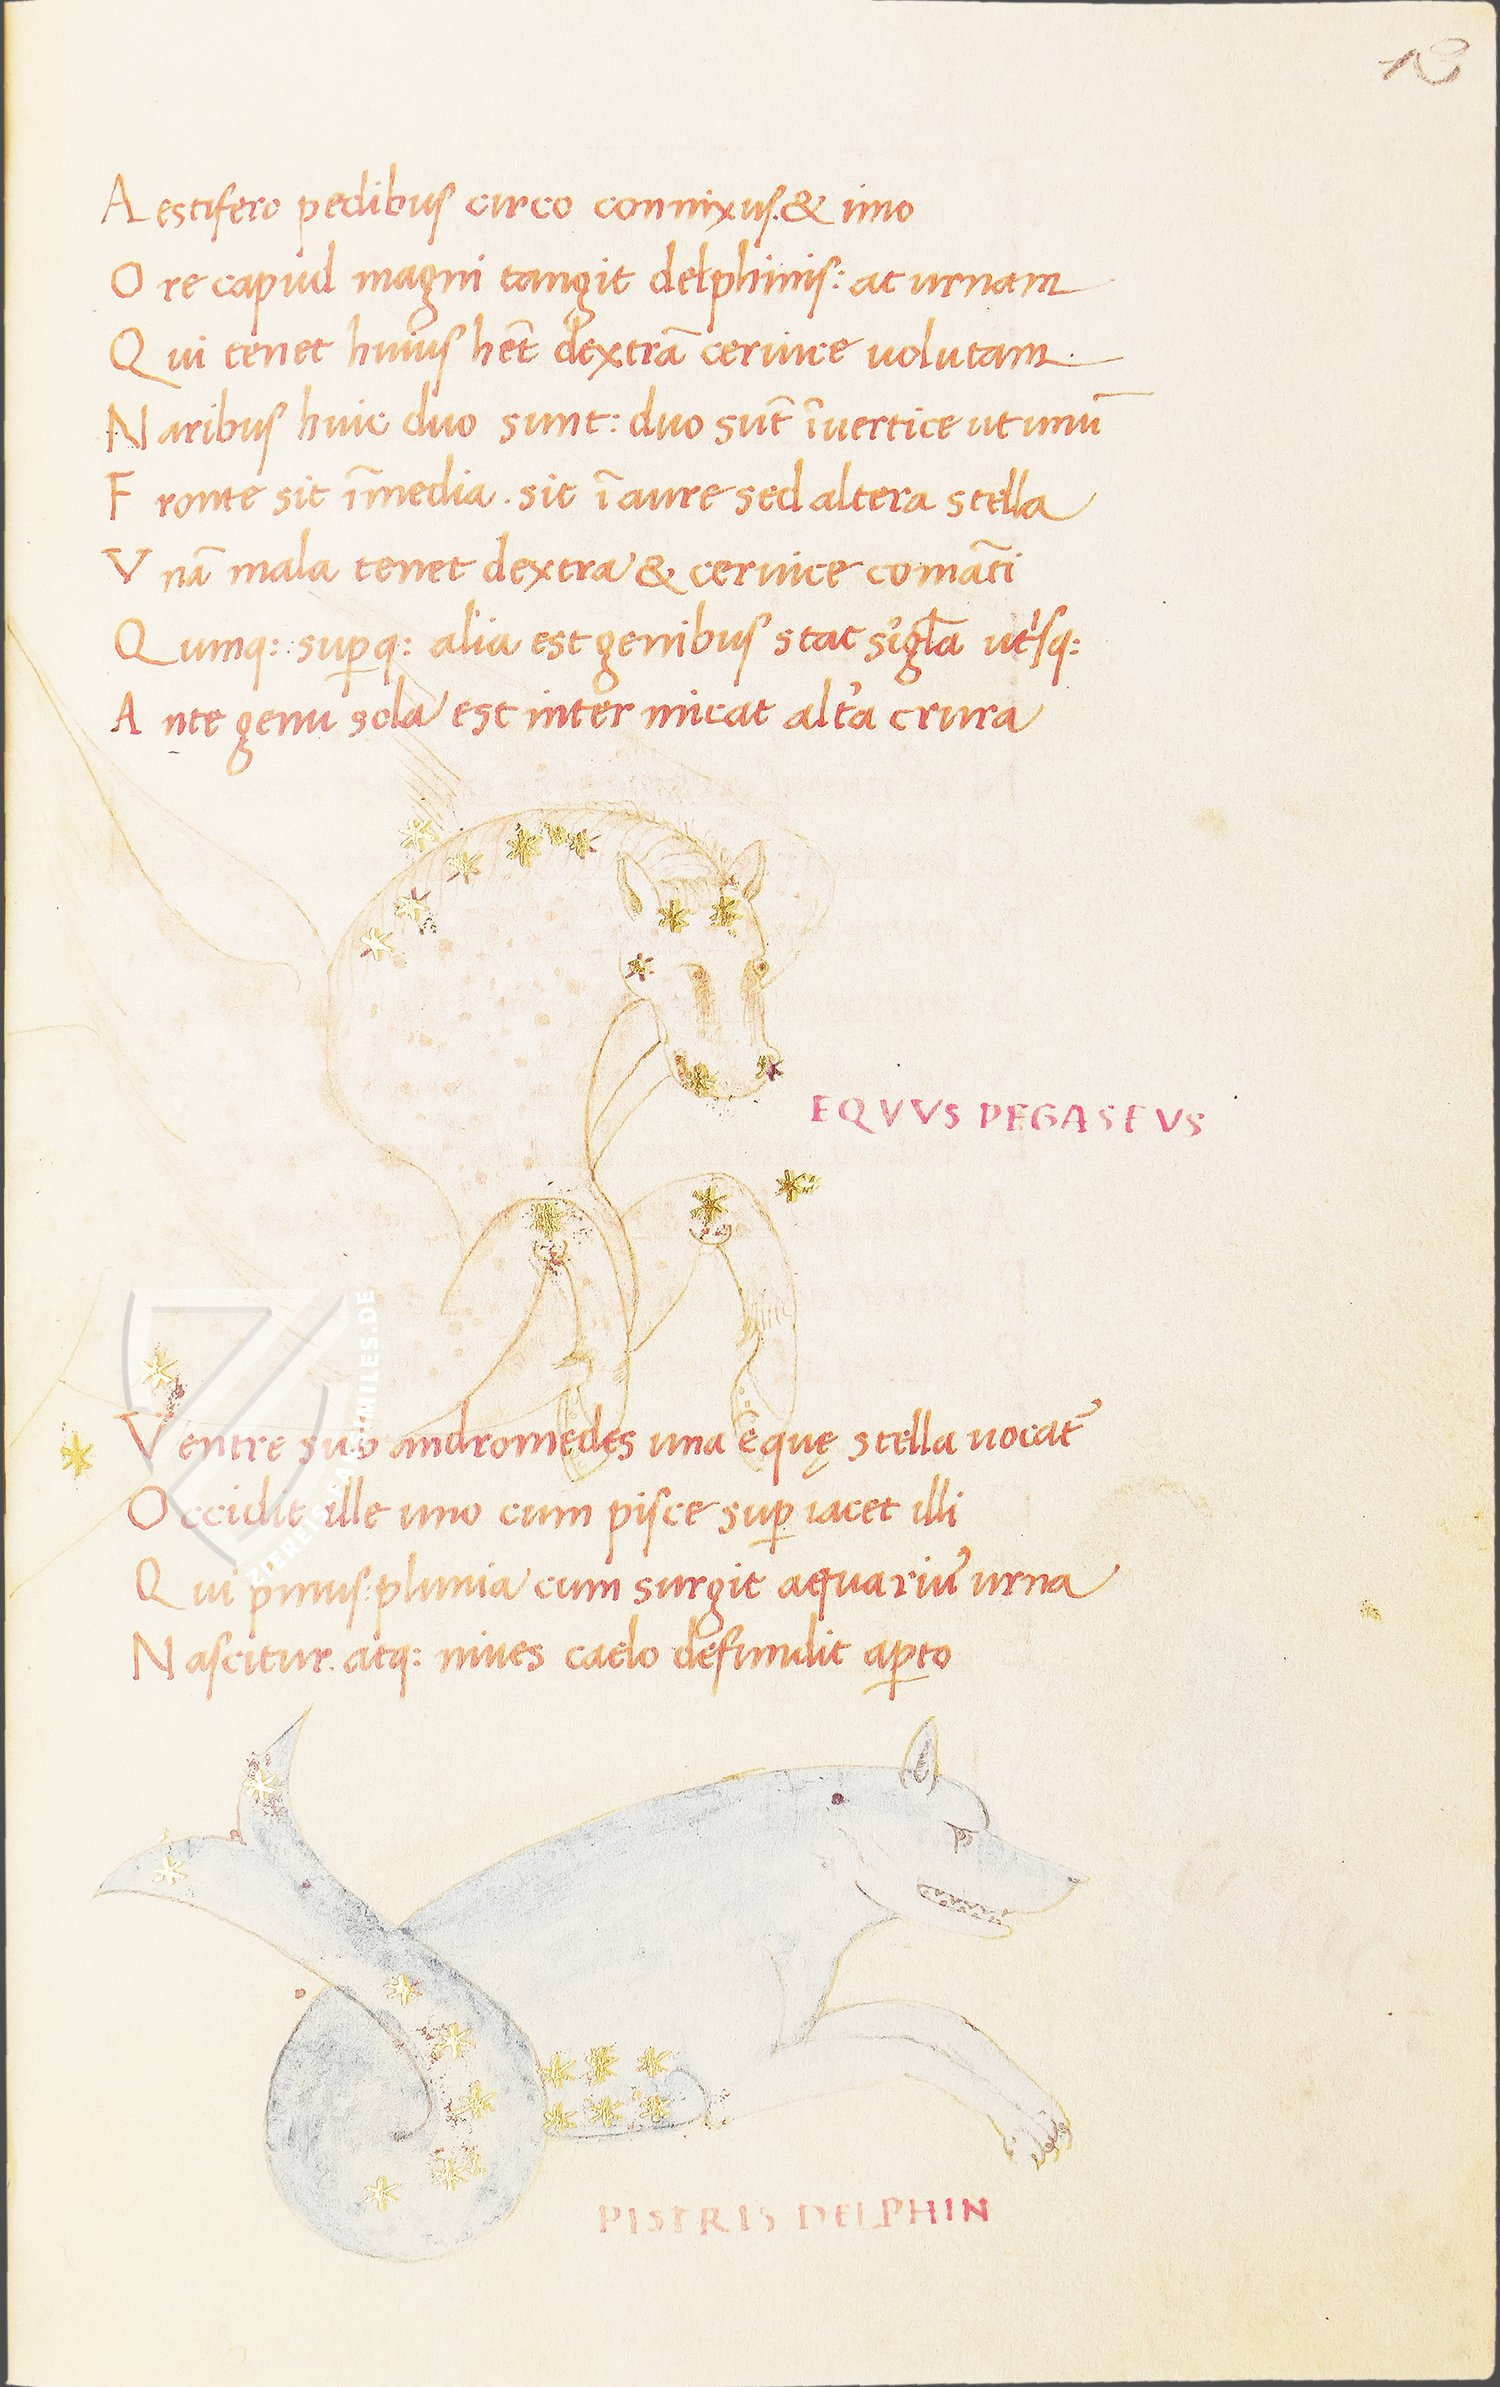 18
Aestifero pedibus circo connixus. & imo
Ore capud magni tangit delphinis: at urnam
Qui tenet huius hēt dextrā ceruice uolutam.
Naribus huic duo sunt: duo sūt ī uertice ut unū
Fronte sit ī media. sit ī aure sed altera stella
Vnā mala tenet dextra & ceruice comāti
Qumq: sup̱q: alia est genibus stat sīgla utˀsq:
Ante genu sola est inter micat altˀa crura
EQVVS PEGASEVS
Ventre sub andromedes una ēquę stella uocatˀ
Occidit ille uno cum pisce sup̱ iacet illi
Qui pmus: pluuia cum surgit aquariuˀ urna
Nascitur. atq: niues caelo defundit ap̱to
PISTRIS DELPHIN
ZIEREIS-FAKSIMILES.DE